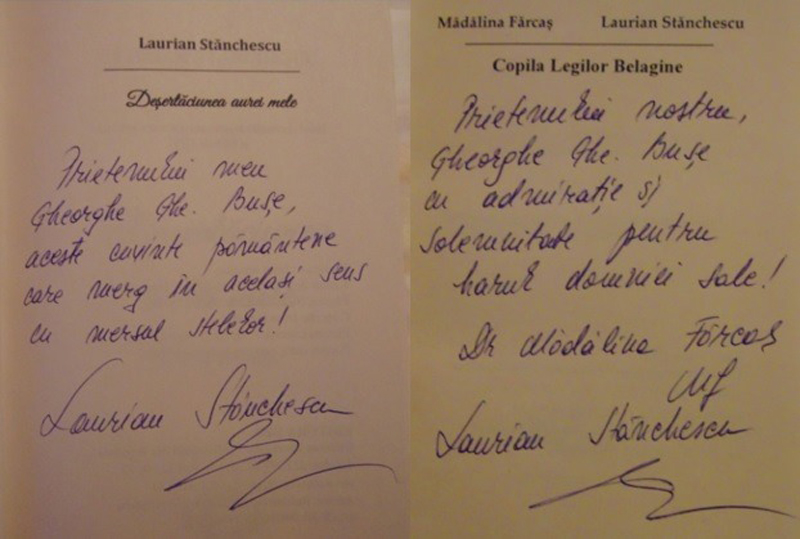 Laurian Stănchescu
Deșertăciunea aurei mele
Prietenului meu
Gheorghe Ghe. Bușe,
aceste cuvinte pământene
care merg în același sens
cu mersul stelelor!
Laurian Stănchescu
Mădălina Fărcaș Laurian Stănchescu
Copila Legilor Belagine
Prietenului nostru,
Gheorghe Ghe. Bușe
cu admirație și
solemnitate pentru
harul domniei sale!
Dr Mădălina Fărcaș
Laurian Stănchescu